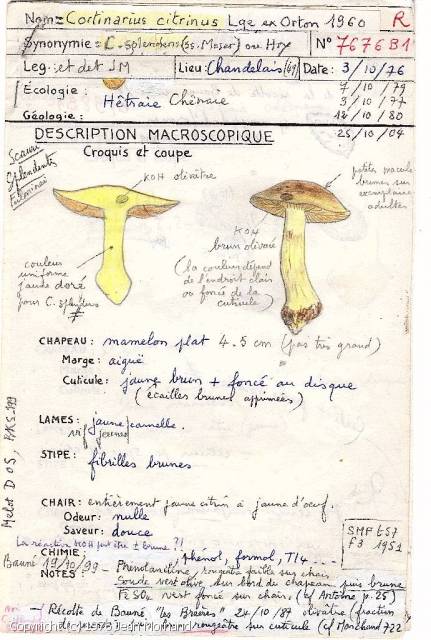 Nom= Cortinarius citrinus Lge ex Orton 1960 R
Synonymie= C. splendens (ss. Moser) ou Hry N° 7676B1
Leg= et det JM Lieu: Chandelais (49) Date: 3/10/76
Écologie: 7/10/79
Hêtraie Chênaie 3/10/77
Géologie: 12/10/80
25/10/04
DESCRIPTION MACROSCOPIQUE
Croquis et coupe
KOH olivâtre
petites macules
brunes sur
exemplaire
adulte
KOH
brun olivacé
(la couleur dépend
de l'endroit clair
ou foncé de la
cuticule)
couleur
uniforme
jaune doré
pour C. splendens
≠
CHAPEAU: mamelon plat 4.5 cm (pas très grand)
Marge: aiguë
Cuticule: jaune brun + foncé au disque
(écailles brunes apprimées)
LAMES: jaune cannelle.
vif jeunes
STIPE: fibrilles brunes
CHAIR: entièrement jaune citrin à jaune d'oeuf.
Odeur: nulle
Saveur: douce
La réaction KOH peut être ± brune?!
CHIMIE: phénol, formol, Tl4 ....
Bauné 19/10/99
NOTES: - Phénolaniline, rougeâtre faible sur chair
Soude vert olive, sur bord du chapeau puis brune
FeSO4 vert foncé sur chair. (cf Antoine p. 25)
- Récolte de Bauné, "les Brières" 24/10/87 olivâtre (fraction
de seconde) brun rougeâtre sur cuticule (cf Marchand 722
SMF t 57
F3 1951
Melot DOS,
Copyright (c) 1973 Jean Mornand